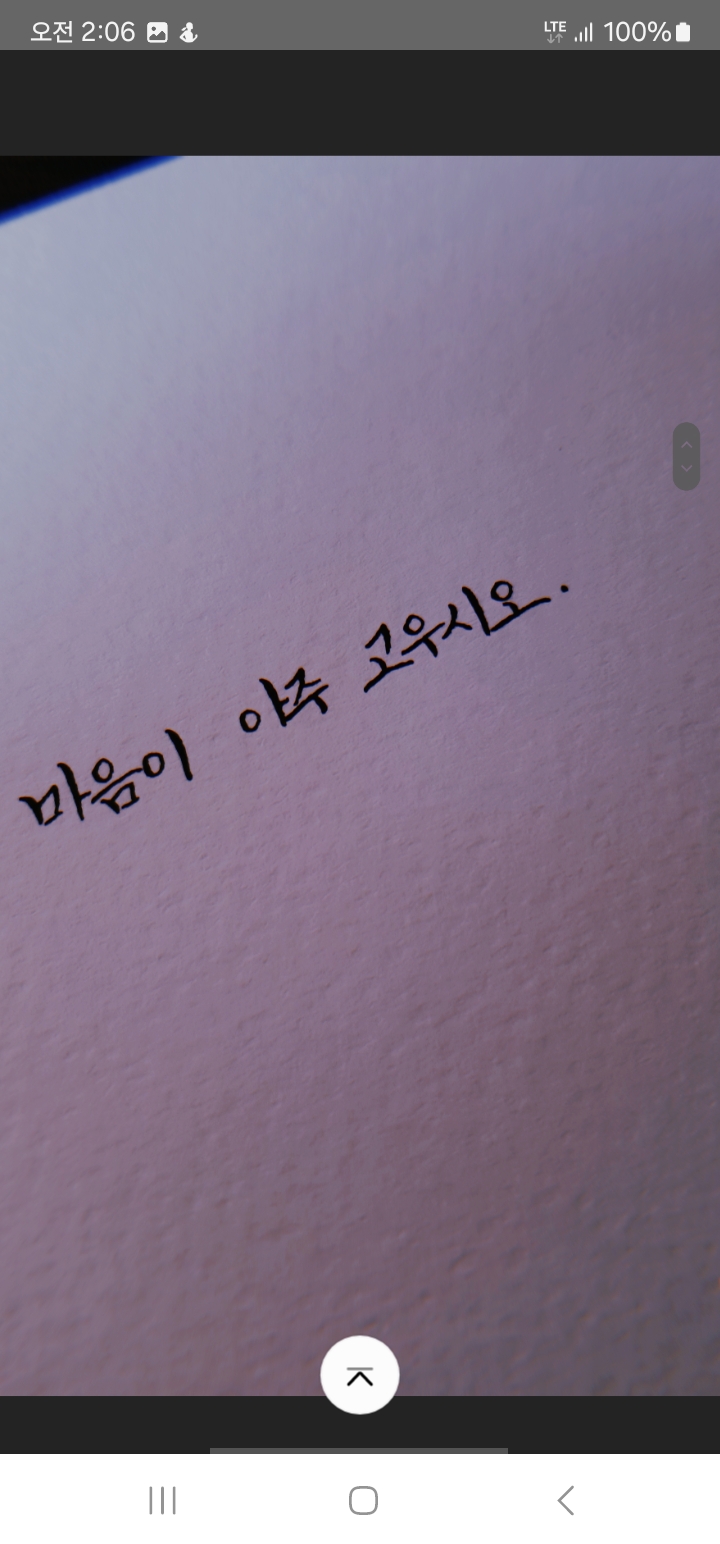 오전 2:06 LTE 100%
마음이 아주 고우시오.